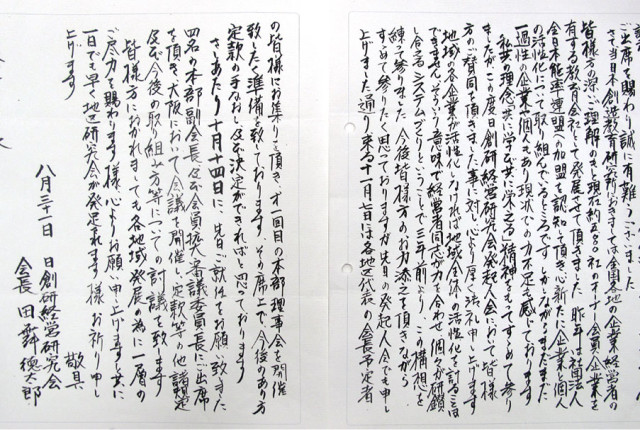 ご出席を賜わり誠に有難うございました
さて当日本創造教育研究所におきましては全国各地の企業経営者の
皆様方の深いご理解のもと現在約480社のオーナー会員企業を
有する教育会社として発展させて頂きました 昨年は社団法人
全日本能率連盟への加盟を認知を頂き心新たに企業と個人
の活性化について取り組んでいるところです しかしながらまだまだ
過性の企業 個人もあり現状での力不足を感じております
私共の理念共に学び共に栄える精神をもってすゝめて参り
ましたがこの度日創研経営研究会発起人会において皆様
方のご賛同を頂きました事に対し心より厚く御礼申し上げます
地域の各企業が活性化しなければ地域全体の活性化を計ることは
できません そういう意味で経営者同志力を合わせ 個々が研鑽
し合えるシステムづくりということで三年前より、この構想を
練って参りました 今後皆様方のお力添えを頂きながら
すゝめて参りたく思っておりますが先日の発起人会でも申し
上げました通り来る十一月七日は各地区代表の会長予定者
の皆様にお集り頂き、才一回目の本部理事会を開催
致したく準備を致しております。その席上で、今後のあり方
定款の手なおし及び決定ができればと思っております
さしあたり十月十四日に、先日ご就任をお願い致しました
四名の本部副会長及び会員拡大審議委員長にご出席
を頂き、大阪において会議を開催し、定款等その他諸規定
及び今後の取り組み方等についての討議を致します
皆様方におかれましても各地域発展の為に一層の
ご尽力を賜わります様、心よりお願い申し上げますと共に
一日でも早く地区研究会が発足されます様 お祈り申し
上げます
敬具
八月三十一日 日創研経営研究会
会長 田舞徳太郎